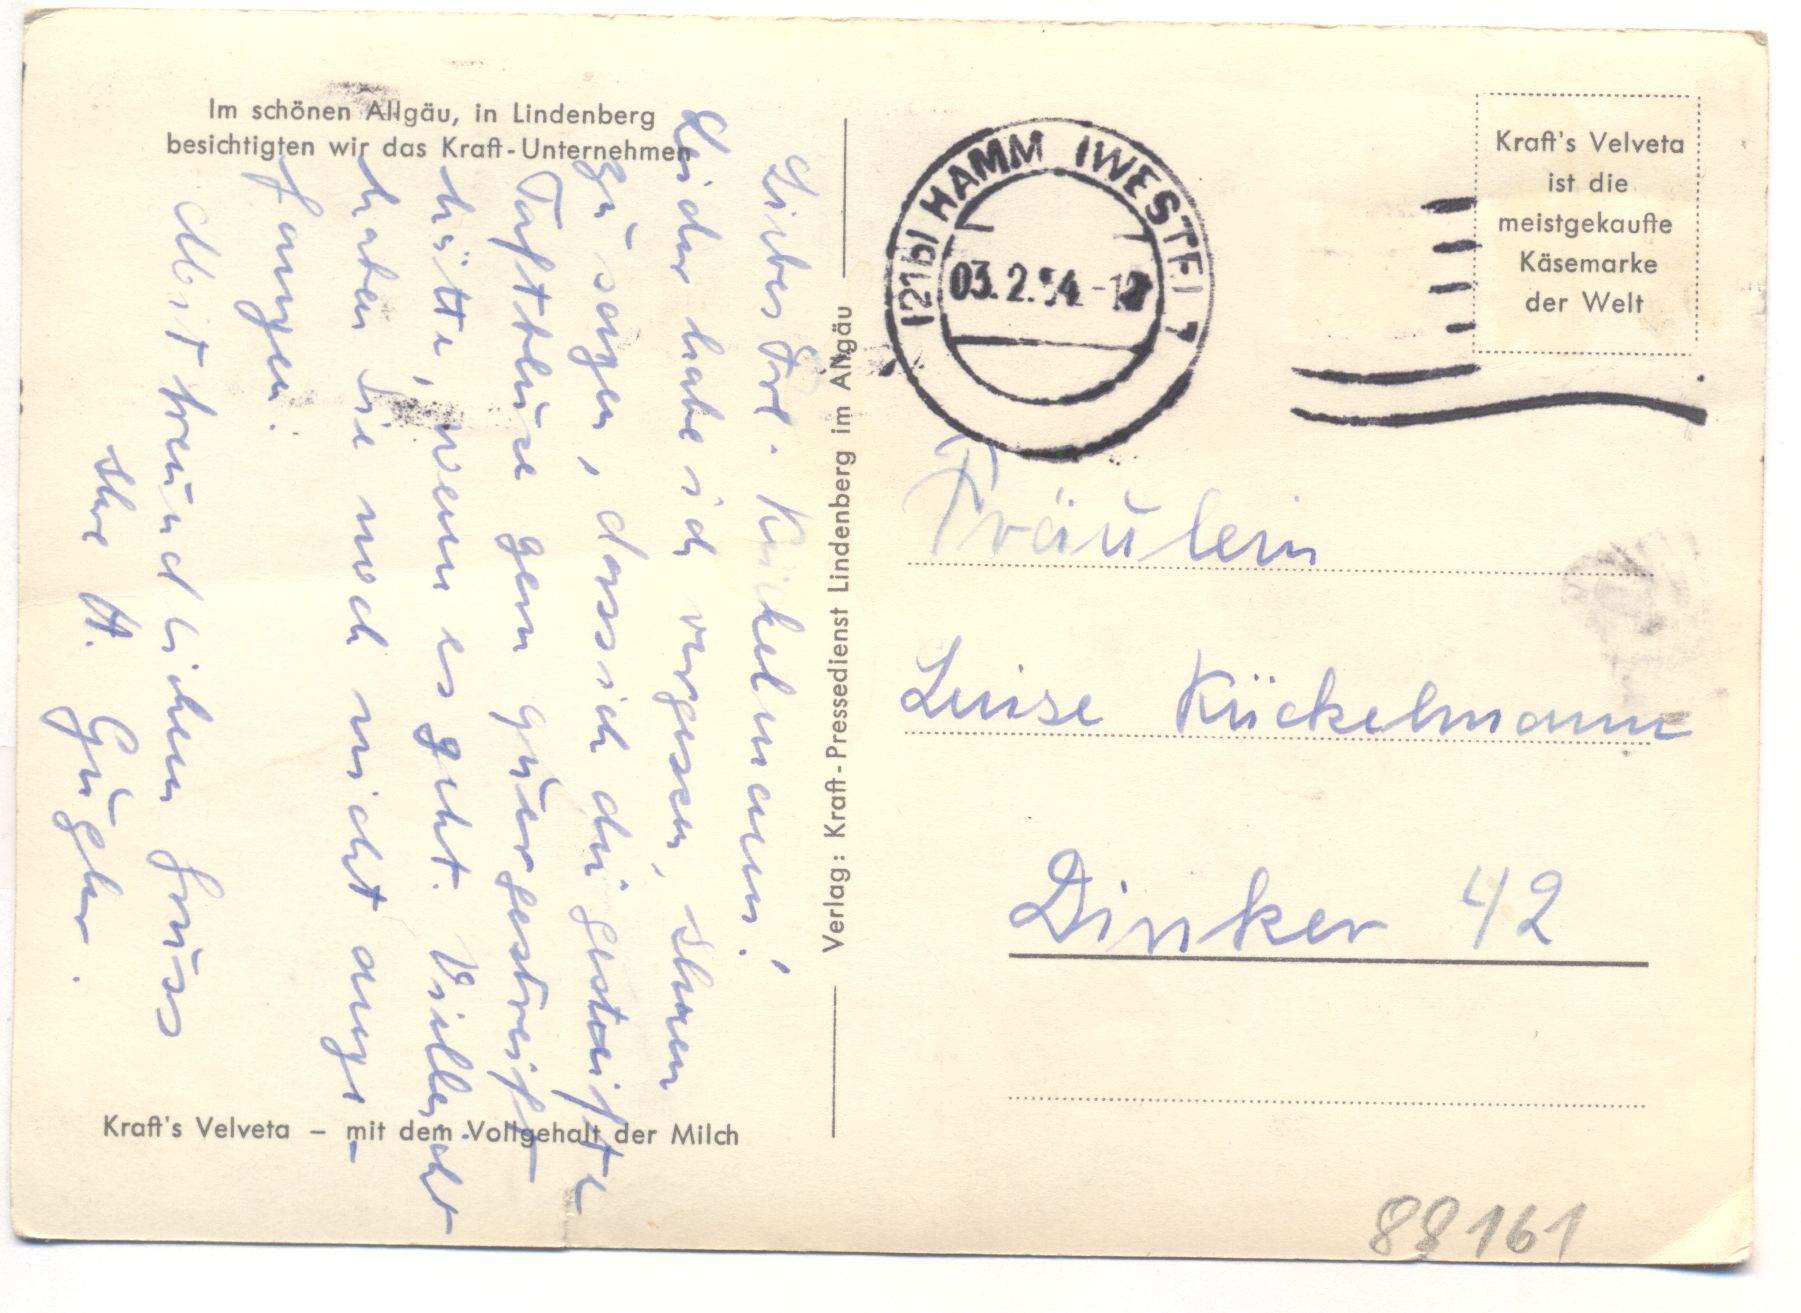 Im schönen Allgäu, in Lindenberg
besichtigten wir das Kraft-Unternehmen
Liebes Frl. Kückelmann!
Leider habe ich vergessen, Ihnen
zu sagen, dass ich die gestreifte
Taftbluse gern quergestreift
hätte, wenn es geht. Vielleicht
haben Sie noch nicht ange-
fangen.
Mit freundlichem Gruss
Ihre H. Gugler.
Kraft's Velveta – mit dem Vollgehalt der Milch
Verlag: Kraft-Pressedienst Lindenberg im Allgäu
(21b) HAMM (WESTF) 7
03.2.54.-17
Kraft's Velveta
ist die
meistgekaufte
Käsemarke
der Welt
Fräulein
Luise Kückelmann
Dinker 42
88161